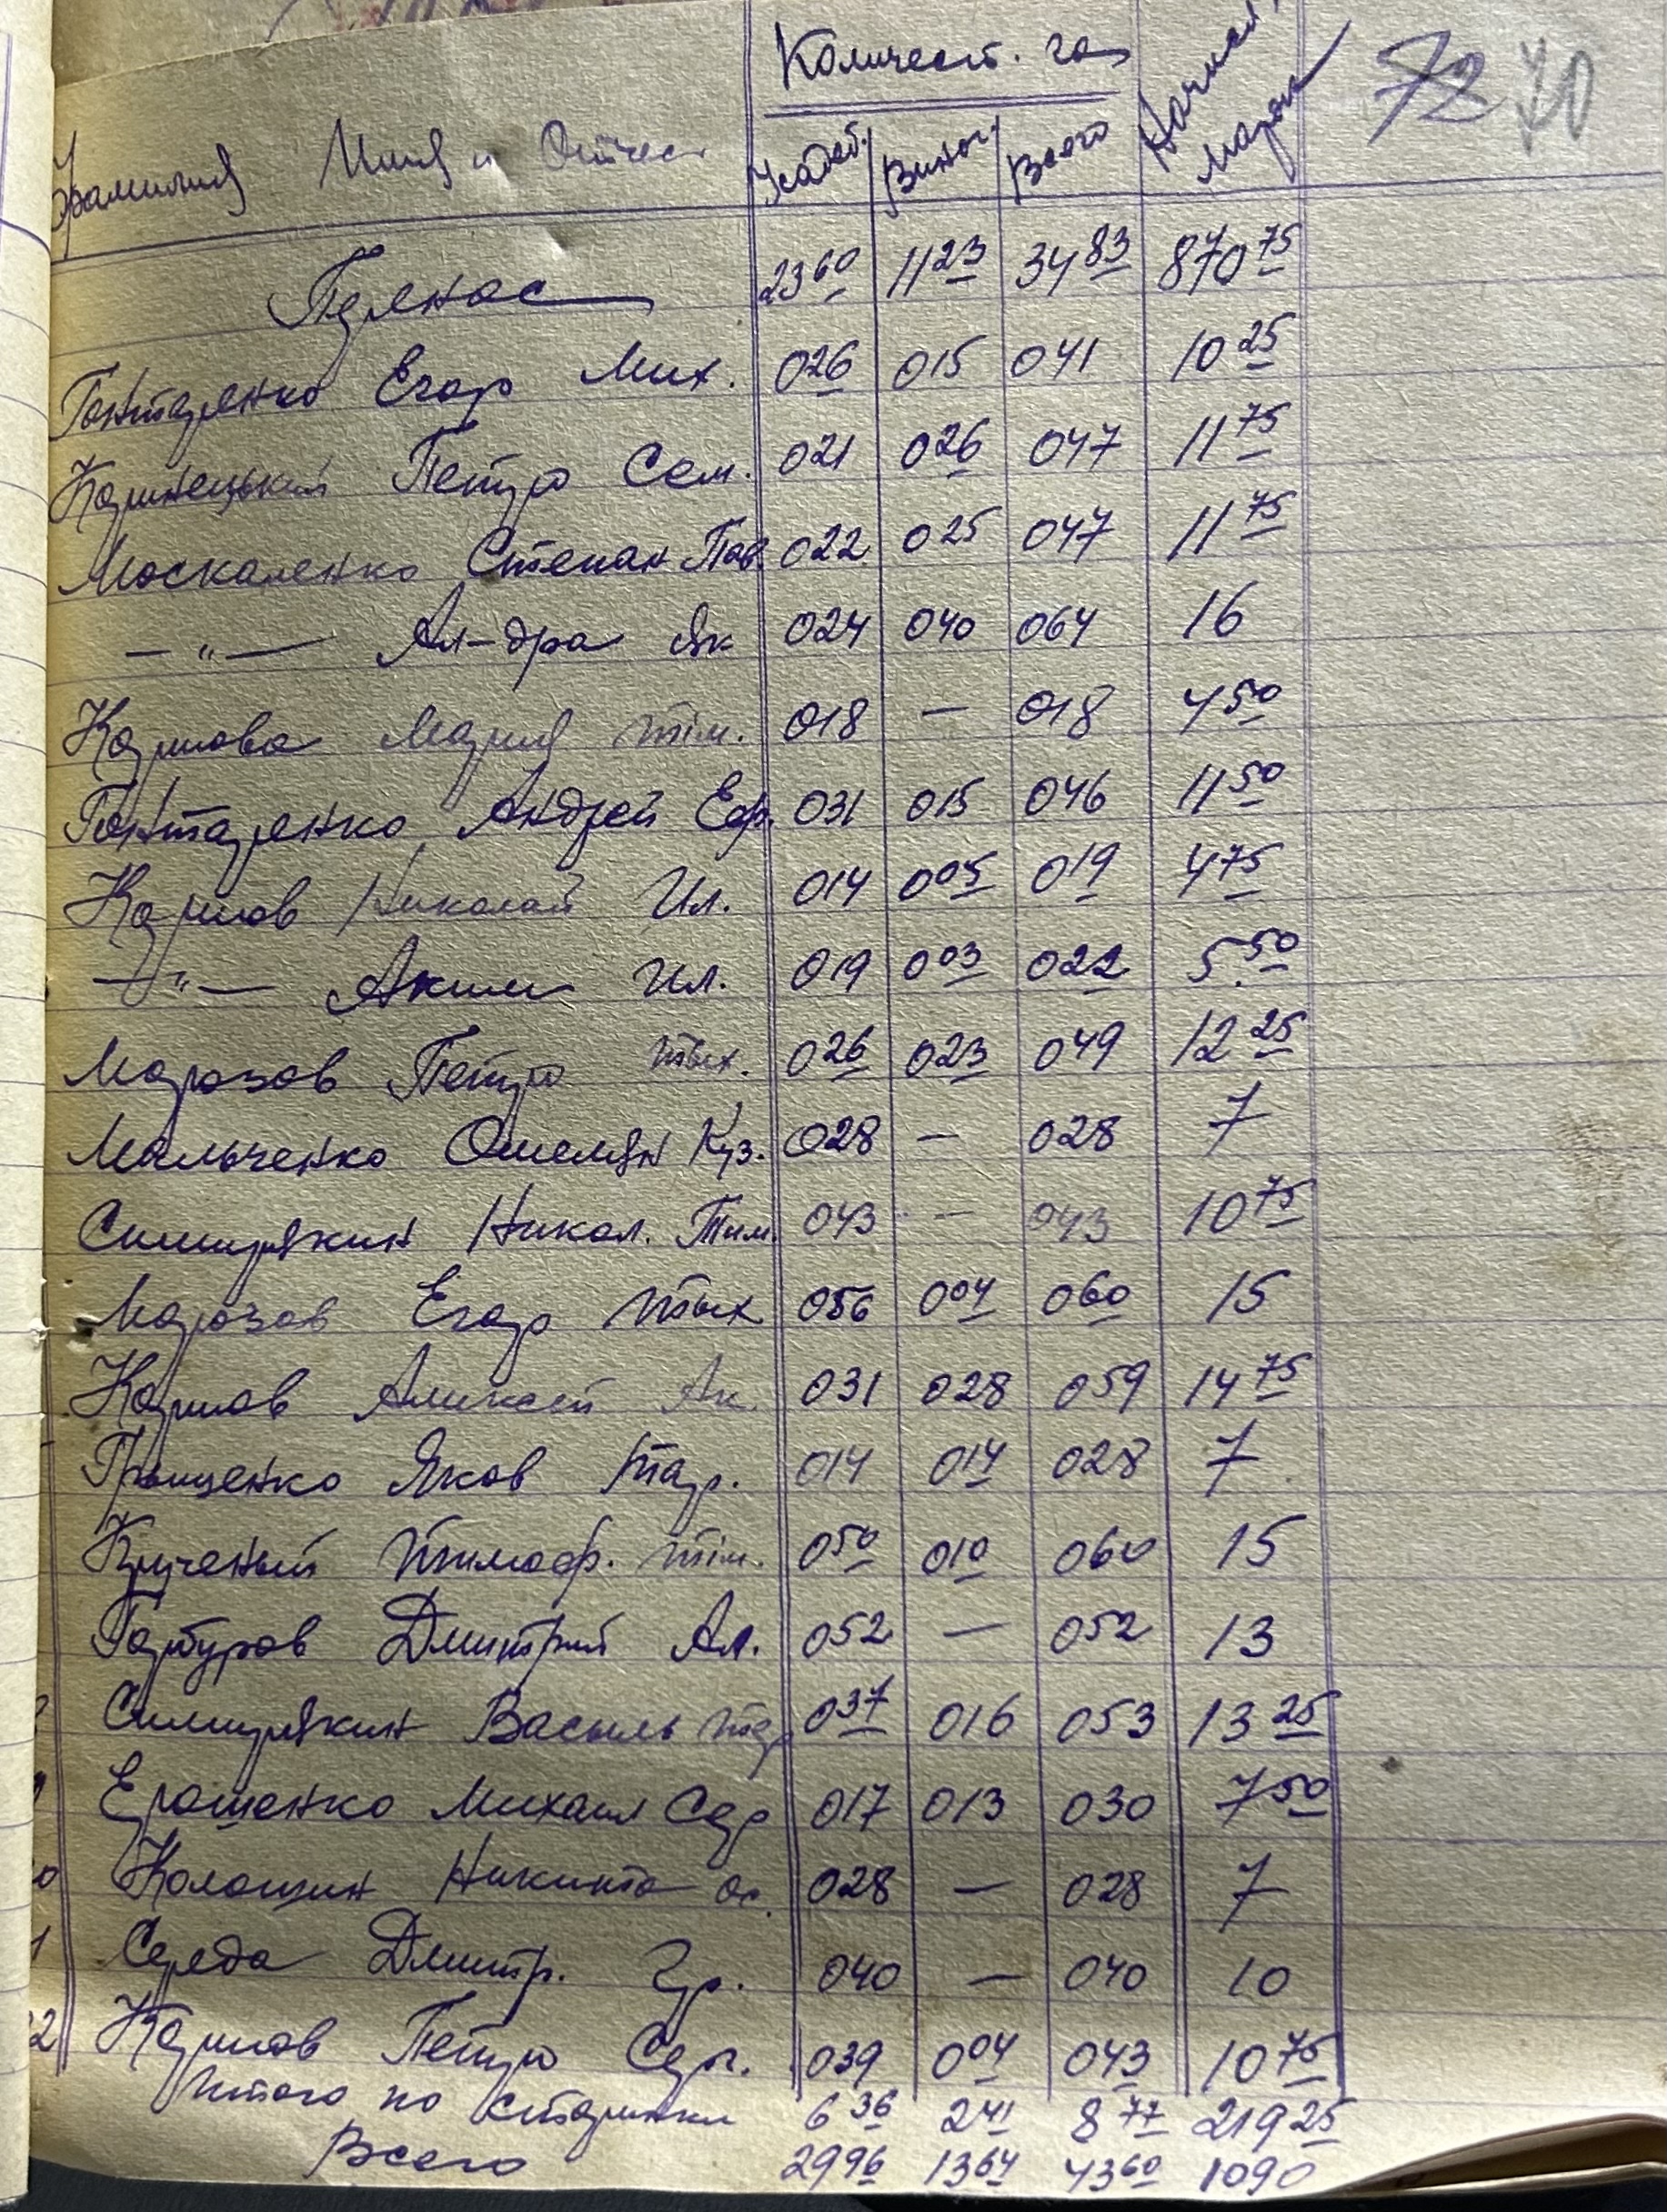 Количест. га
72 70
Фамилия Имя и Отчес
Усадеб. Виног. Всего Начисл. марок
Перенос 23 60 11 23 34 83 870 75
Гонтаренко Егор Мих. 026 015 041 10 25
Каринецький Петро Сем. 021 026 047 11 75
Москаленко Степан Пав. 022 025 047 11 75
— " — Ал-дра Як 024 040 064 16
Карпова Мария Тім. 018 — 018 4 50
Гонтаренко Андрей Еф. 031 015 046 11 50
Карпов Николай Ил. 014 005 019 4 75
— " — Аким Ил. 019 003 022 5.50
Марозов Петро Тых. 026 023 049 12 25
Мальченко Омелян Куз. 028 — 028 7
Симирякин Никол. Тим. 043 — 043 10 75
Марозов Егор Тых 056 004 060 15
Карпов Алексей Ак. 031 028 059 14 75
Грищенко Яков Тар. 014 014 028 7
Крученый Тимоф. Тім. 050 010 060 15
Гарбузов Дмитрий Ал. 052 — 052 13
Симирякин Василь 037 016 053 13 25
Ерошенко Михаил Сер 017 013 030 7 50
0 Никита ос. 028 — 028 7
1 Середа Дмитр. Гр. 040 — 040 10
22 Карпов Петро Серг. 039 004 043 10 75
Итого по старинки 6 36 2 41 8 77 219 25
Всего 29 96 13 64 43 60 1090